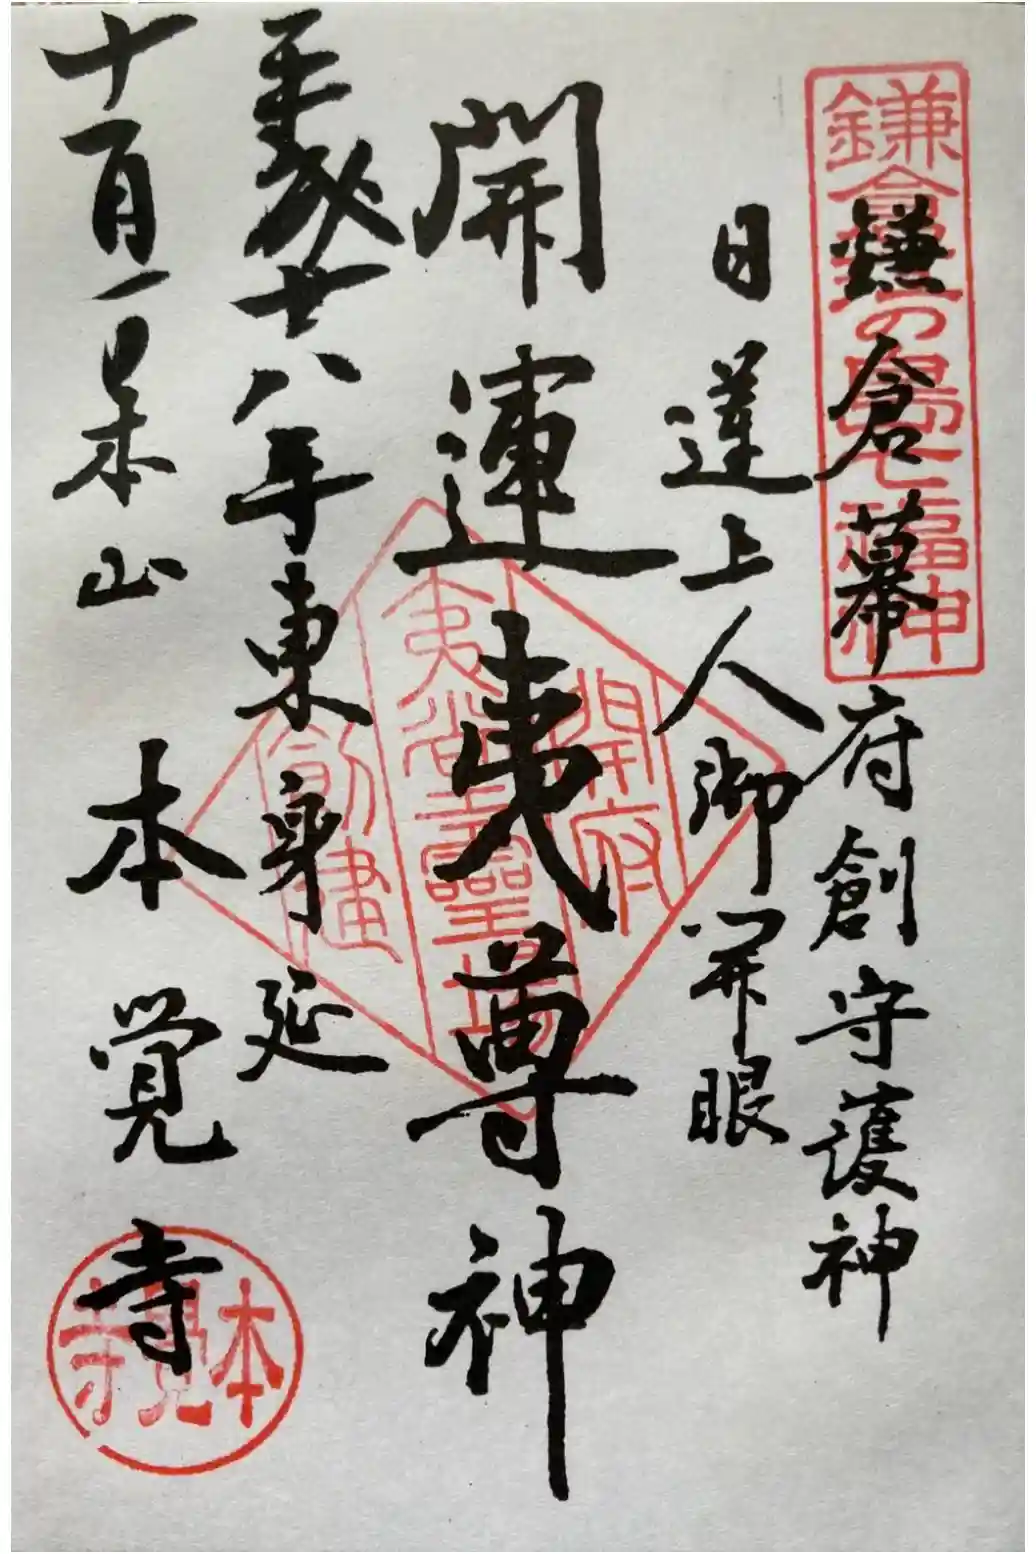 鎌倉江の島七福神
鎌倉幕府創守護神
日蓮上人御開眼
開運夷尊神
平成廿八年東身延
十一月一日本山
本覚寺
開府
夷堂霊場
創建
本覺寺